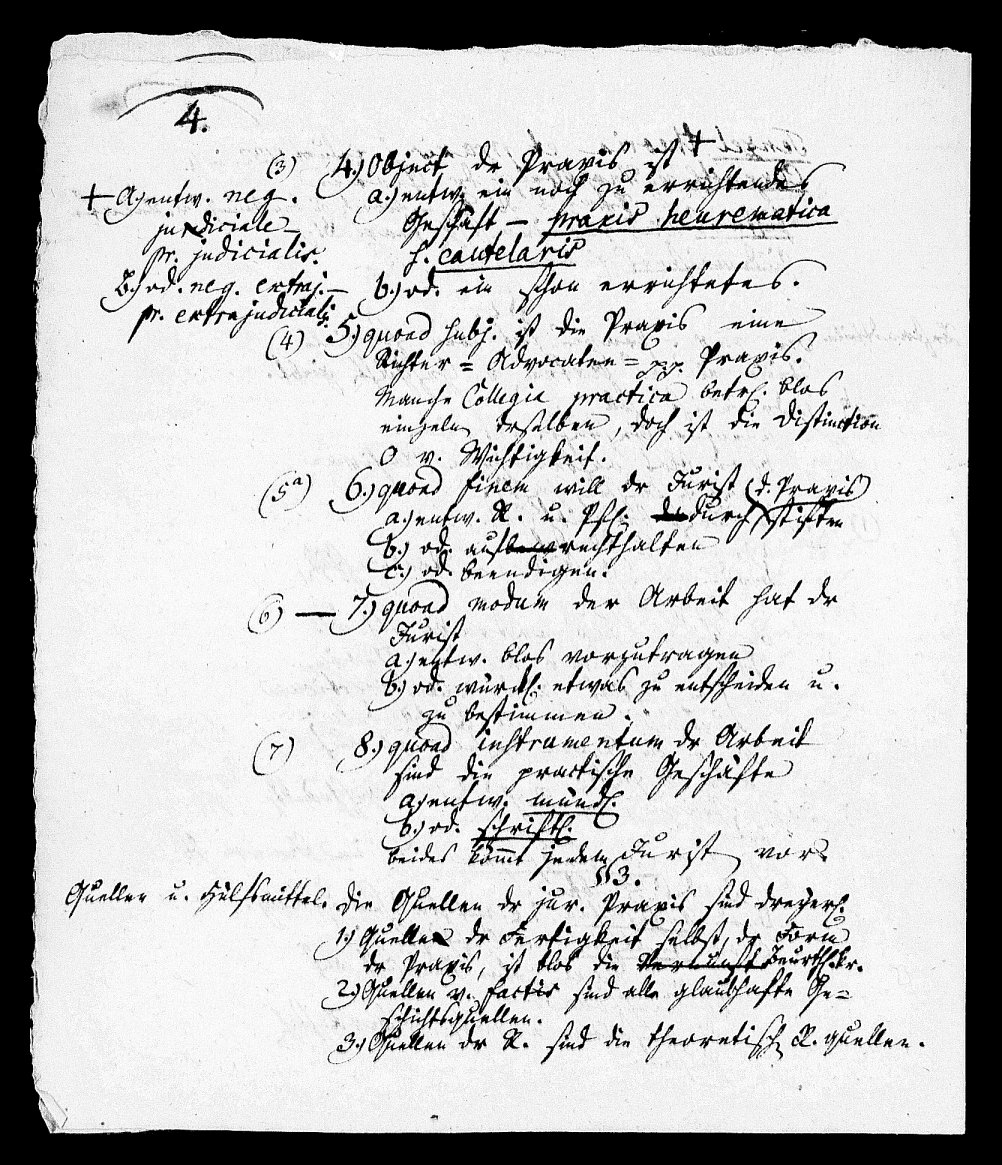 4.
(3) 4.) Object dr Praxis ist +
+ A.) entw. neg.
judiciale
pr. judicialis.
B.) od. neg. extraj. –
pr. extrajudicialis
a.) entw. ein noch zu errichtendes
Geschäft – praxis heurematica
s. cautelaris
b.) od. ein schon errichtetes.
(4) 5.) quoad subj. ist die Praxis eine
Richter = Advocaten = ppp. Praxis.
Manche Collegia practica betr. blos
einzeln drselben, doch ist die Distinction
0 v. Wichtigkeit.
(5a) 6.) quoad finem will dr Jurist (d. Praxis)
a.) entw. R. u. Pfl. dadurch stiften
b.) od. aufbewrechthalten
c.) od. beendigen.
(6) — 7.) quoad modum der Arbeit hat dr
Jurist
a.) entw. blos vorzutragen
b.) od. würkl. etwas zu entscheiden u.
zu bestimmen.
(7) 8.) quoad instrumentum dr Arbeit
sind die practische Geschäfte
a.) entw. mündl.
b.) od. schriftl.
beides kömt jedem Jurist vor.
§3.
Quellen u. Hülfsmittel. Die Quellen dr jur. Praxis sind dreyerl.
1.) Quellen dr Fertigkeit selbst, dr Form
dr Praxis, ist blos die Vernunft Beurth.kr.
2.) Quellen v. factis sind alle glaubhafte Ge=
schichtsquellen.
3.) Quellen dr R. sind die theoretisch R. quellen.